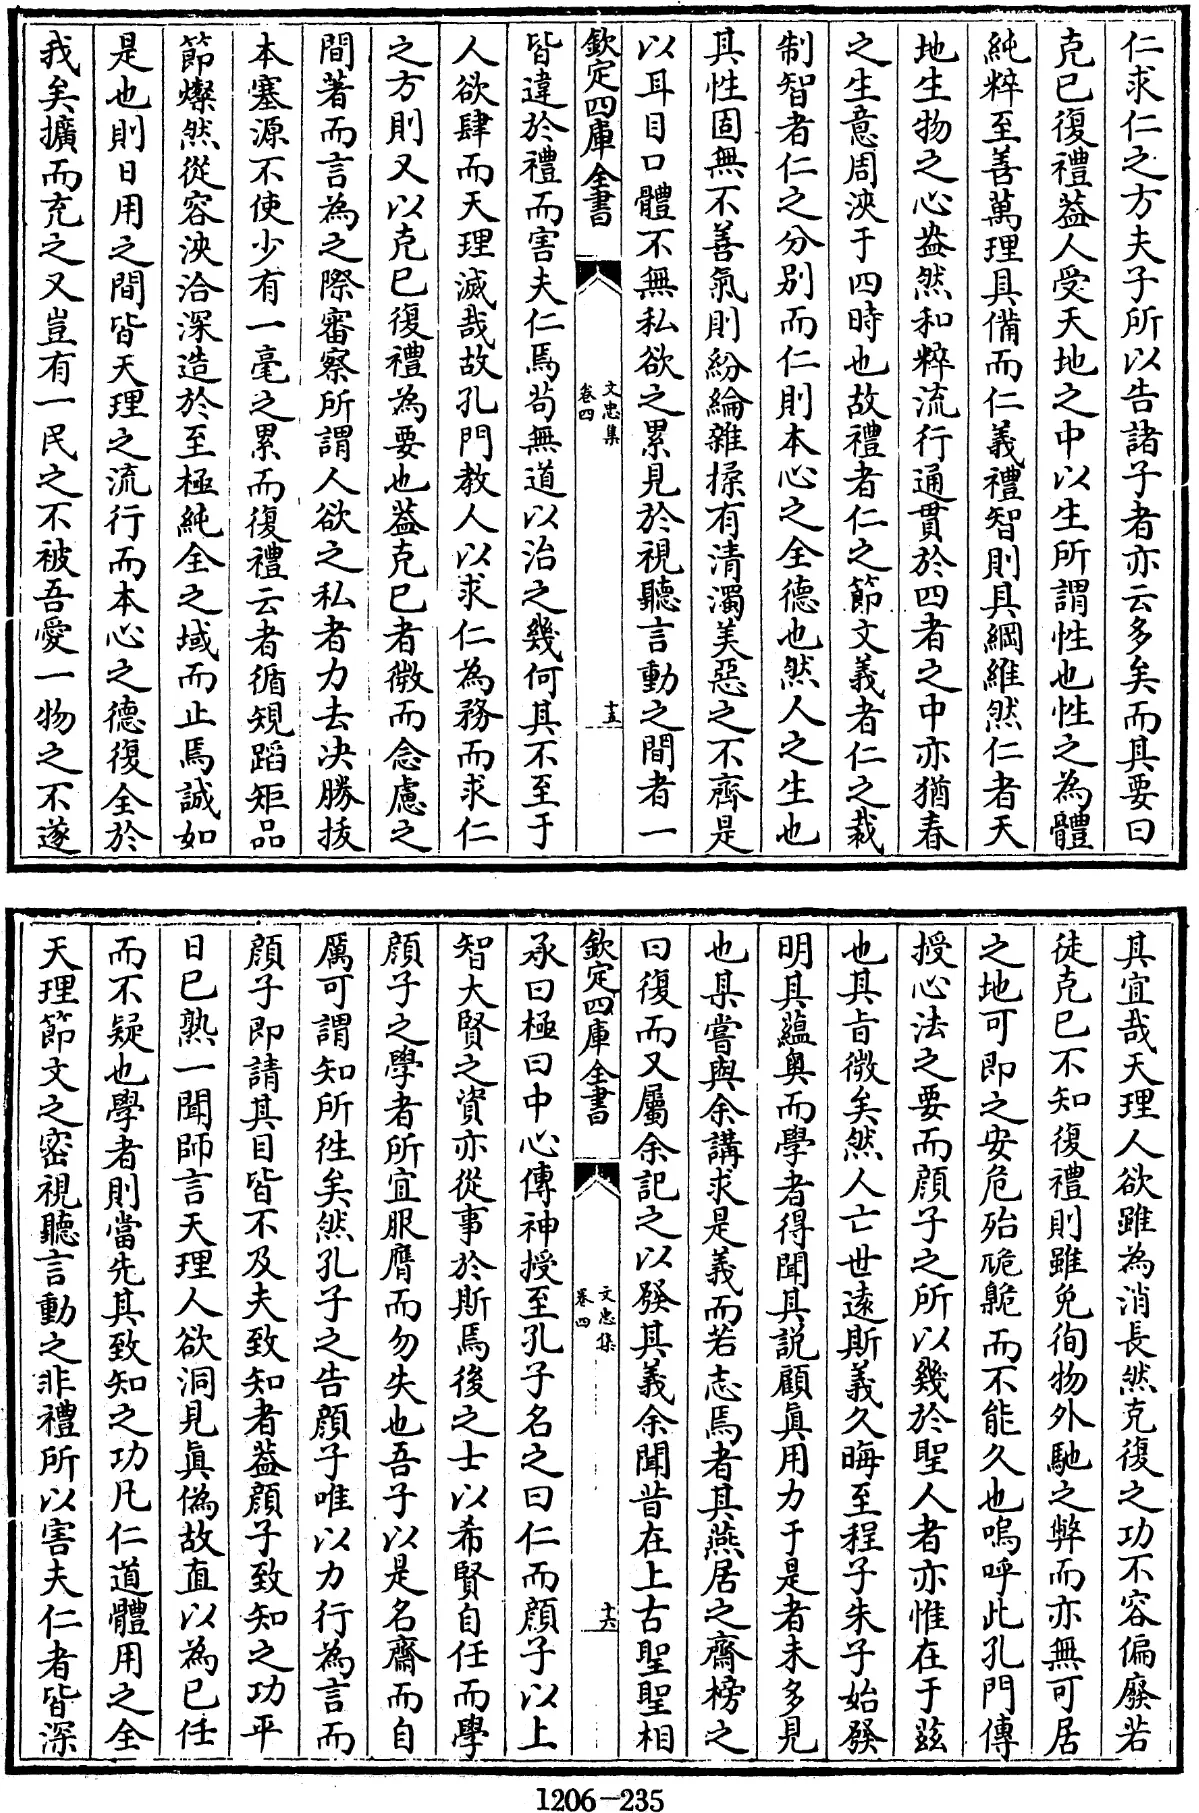 仁求仁之方夫子所以告諸子者亦云多矣而其要曰
克已復禮葢人受天地之中以生所謂性也性之為體
純粹至善萬理具備而仁義禮智則具綱維然仁者天
地生物之心盎然和粹流行通貫於四者之中亦猶春
之生意周浹于四時也故禮者仁之節文義者仁之裁
制智者仁之分别而仁則本心之全德也然人之生也
其性固無不善氣則紛綸雜揉有清濁美惡之不齊是
以耳目口體不無私欲之累見於視聽言動之間者一
欽定四庫全書
文忠集
卷四
十五
皆違於禮而害夫仁焉茍無道以治之幾何其不至于
人欲肆而天理滅哉故孔門教人以求仁為務而求仁
之方則又以克已復禮為要也葢克已者微而念慮之
間著而言為之際審察所謂人欲之私者力去决勝拔
本塞源不使少有一毫之累而復禮云者循規蹈矩品
節燦然從容浹洽深造於至極純全之域而止焉誠如
是也則日用之間皆天理之流行而本心之德復全於
我矣擴而充之又豈有一民之不被吾愛一物之不遂
其宜哉天理人欲雖為消長然克復之功不容偏廢若
徒克已不知復禮則雖免徇物外馳之弊而亦無可居
之地可即之安危殆臲卼而不能久也嗚呼此孔門傳
授心法之要而顔子之所以幾於聖人者亦惟在于兹
也其旨微矣然人亡世遠斯義久晦至程子朱子始發
明其蘊奥而學者得聞其説顧真用力于是者未多見
也某嘗與余講求是義而若志焉者其燕居之齋榜之
曰復而又屬余記之以發其義余聞昔在上古聖聖相
欽定四庫全書
文忠集
卷四
十六
承曰極曰中心傳神授至孔子名之曰仁而顔子以上
智大賢之資亦從事於斯焉後之士以希賢自任而學
顔子之學者所宜服膺而勿失也吾子以是名齋而自
厲可謂知所徃矣然孔子之告顔子唯以力行為言而
顔子即請其目皆不及夫致知者葢顔子致知之功平
日已熟一聞師言天理人欲洞見真偽故直以為已任
而不疑也學者則當先其致知之功凡仁道體用之全
天理節文之密視聽言動之非禮所以害夫仁者皆深
1206—235